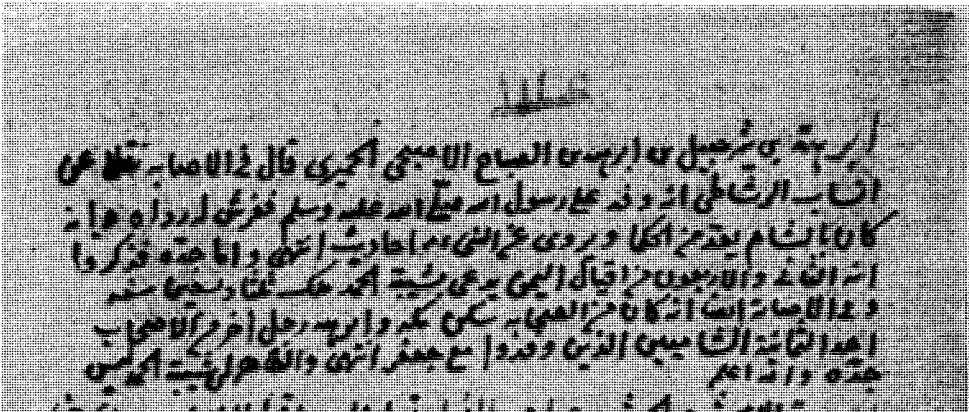 أبرهة بن شرحبيل بن ابرهة بن الصباح الاصبحي الحميري قال في الاصابة نقلا عن
انساب الرشاطي انه وفد على رسول الله صلى الله عليه وسلم ففرش له رداه وانه
كان بالشام يعد من الحكما وروى عن النبي احاديث انتهى واما جده فذكروا
انه الثاني والاربعون من اقيال اليمن يدعى شيبة الحمد ملك ثلثا وسبعين سنة
وفي الاصابة ايضا انه كان من الصحابة سكن مكة وابرهة رجل اخر من الاصحاب
احد الثمانية الشاميين الذين وفدوا مع جعفر انتهى والظاهر شيبة الحمد ليس
جده والله اعلم